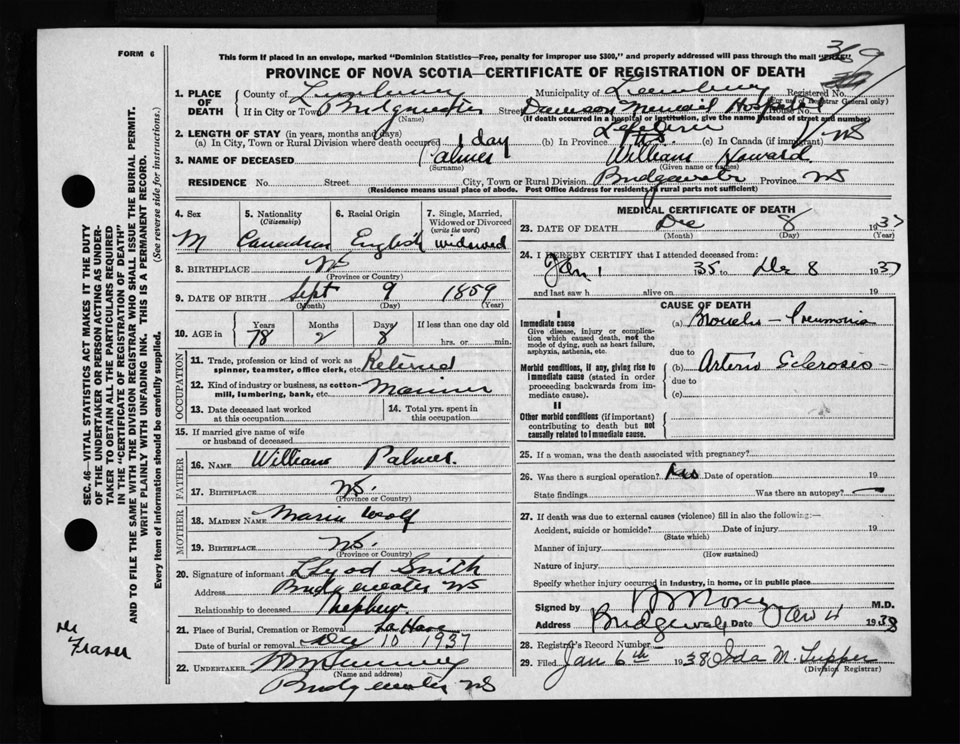 FORM 6
This form if placed in an envelope, marked "Dominion Statistics—Free, penalty for improper use $300," and properly addressed will pass through the mail "FREE"
PROVINCE OF NOVA SCOTIA—CERTIFICATE OF REGISTRATION OF DEATH
369
1. PLACE OF DEATH
County of Lunenburg Municipality of Lunenburg Registered No.
(For use of Registrar General only)
If in City or Town Bridgewater Street Dawson Memorial Hospital House No.
(Name) (If death occurred in a hospital or institution, give the name instead of street and number)
2. LENGTH OF STAY (in years, months and days)
(a) In City, Town or Rural Division where death occurred 1 day (b) In Province Lifetime (c) In Canada (if immigrant)
N.S.
3. NAME OF DECEASED Palmer William Howard
(Surname) (Given name or names)
RESIDENCE No. Street City, Town or Rural Division Bridgewater Province NS
(Residence means usual place of abode. Post Office Address for residents in rural parts not sufficient)
4. Sex 5. Nationality (Citizenship) 6. Racial Origin 7. Single, Married, Widowed or Divorced (write the word)
M Canadian English widowed
8. BIRTHPLACE NS
(Province or Country)
9. DATE OF BIRTH Sept 9 1859
(Month) (Day) (Year)
10. AGE in Years Months Days If less than one day old
78 2 8 hrs. or min.
OCCUPATION
11. Trade, profession or kind of work as spinner, teamster, office clerk, etc. Retired
12. Kind of industry or business, as cotton-mill, lumbering, bank, etc. Mariner
13. Date deceased last worked at this occupation 14. Total yrs. spent in this occupation
15. If married give name of wife or husband of deceased
FATHER
16. NAME William Palmer
17. BIRTHPLACE NS.
(Province or Country)
MOTHER
18. MAIDEN NAME Maria Wolf
19. BIRTHPLACE NS.
(Province or Country)
20. Signature of informant Lloyd Smith
Address Bridgewater NS
Relationship to deceased Nephew
21. Place of Burial, Cremation or Removal La Have
Date of burial or removal Dec 10 1937
22. UNDERTAKER
(Name and address)
Bridgewater NS
MEDICAL CERTIFICATE OF DEATH
23. DATE OF DEATH Dec 8 1937
(Month) (Day) (Year)
24. I HEREBY CERTIFY that I attended deceased from:
Jan 1 35 to Dec 8 1937
and last saw h alive on 19
CAUSE OF DEATH
I
Immediate cause
Give disease, injury or complication which caused death, not the mode of dying, such as heart failure, asphyxia, asthenia, etc.
(a) Broncho-Pneumonia
due to
Morbid conditions, if any, giving rise to immediate cause (stated in order proceeding backwards from immediate cause).
(b) Arterio Sclerosis
due to
(c)
II
Other morbid conditions (if important) contributing to death but not causally related to immediate cause.
25. If a woman, was the death associated with pregnancy?
26. Was there a surgical operation? No Date of operation 19
State findings Was there an autopsy? —
27. If death was due to external causes (violence) fill in also the following:—
Accident, suicide or homicide? Date of injury 19
(State which)
Manner of injury
(How sustained)
Nature of injury
Specify whether injury occurred in industry, in home, or in public place
Signed by M.D.
Address Bridgewater Date Jan 4 1938
28. Registrar's Record Number —
29. Filed Jan 6th 1938 Ida M. Tupper
(Division Registrar)
SEC. 46—VITAL STATISTICS ACT MAKES IT THE DUTY
OF THE UNDERTAKER OR PERSON ACTING AS UNDER-
TAKER TO OBTAIN ALL THE PARTICULARS REQUIRED
IN THE "CERTIFICATE OF REGISTRATION OF DEATH"
AND TO FILE THE SAME WITH THE DIVISION REGISTRAR WHO SHALL ISSUE THE BURIAL PERMIT.
WRITE PLAINLY WITH UNFADING INK. THIS IS A PERMANENT RECORD.
Every item of information should be carefully supplied. (See reverse side for instructions.)
Dr
Fraser